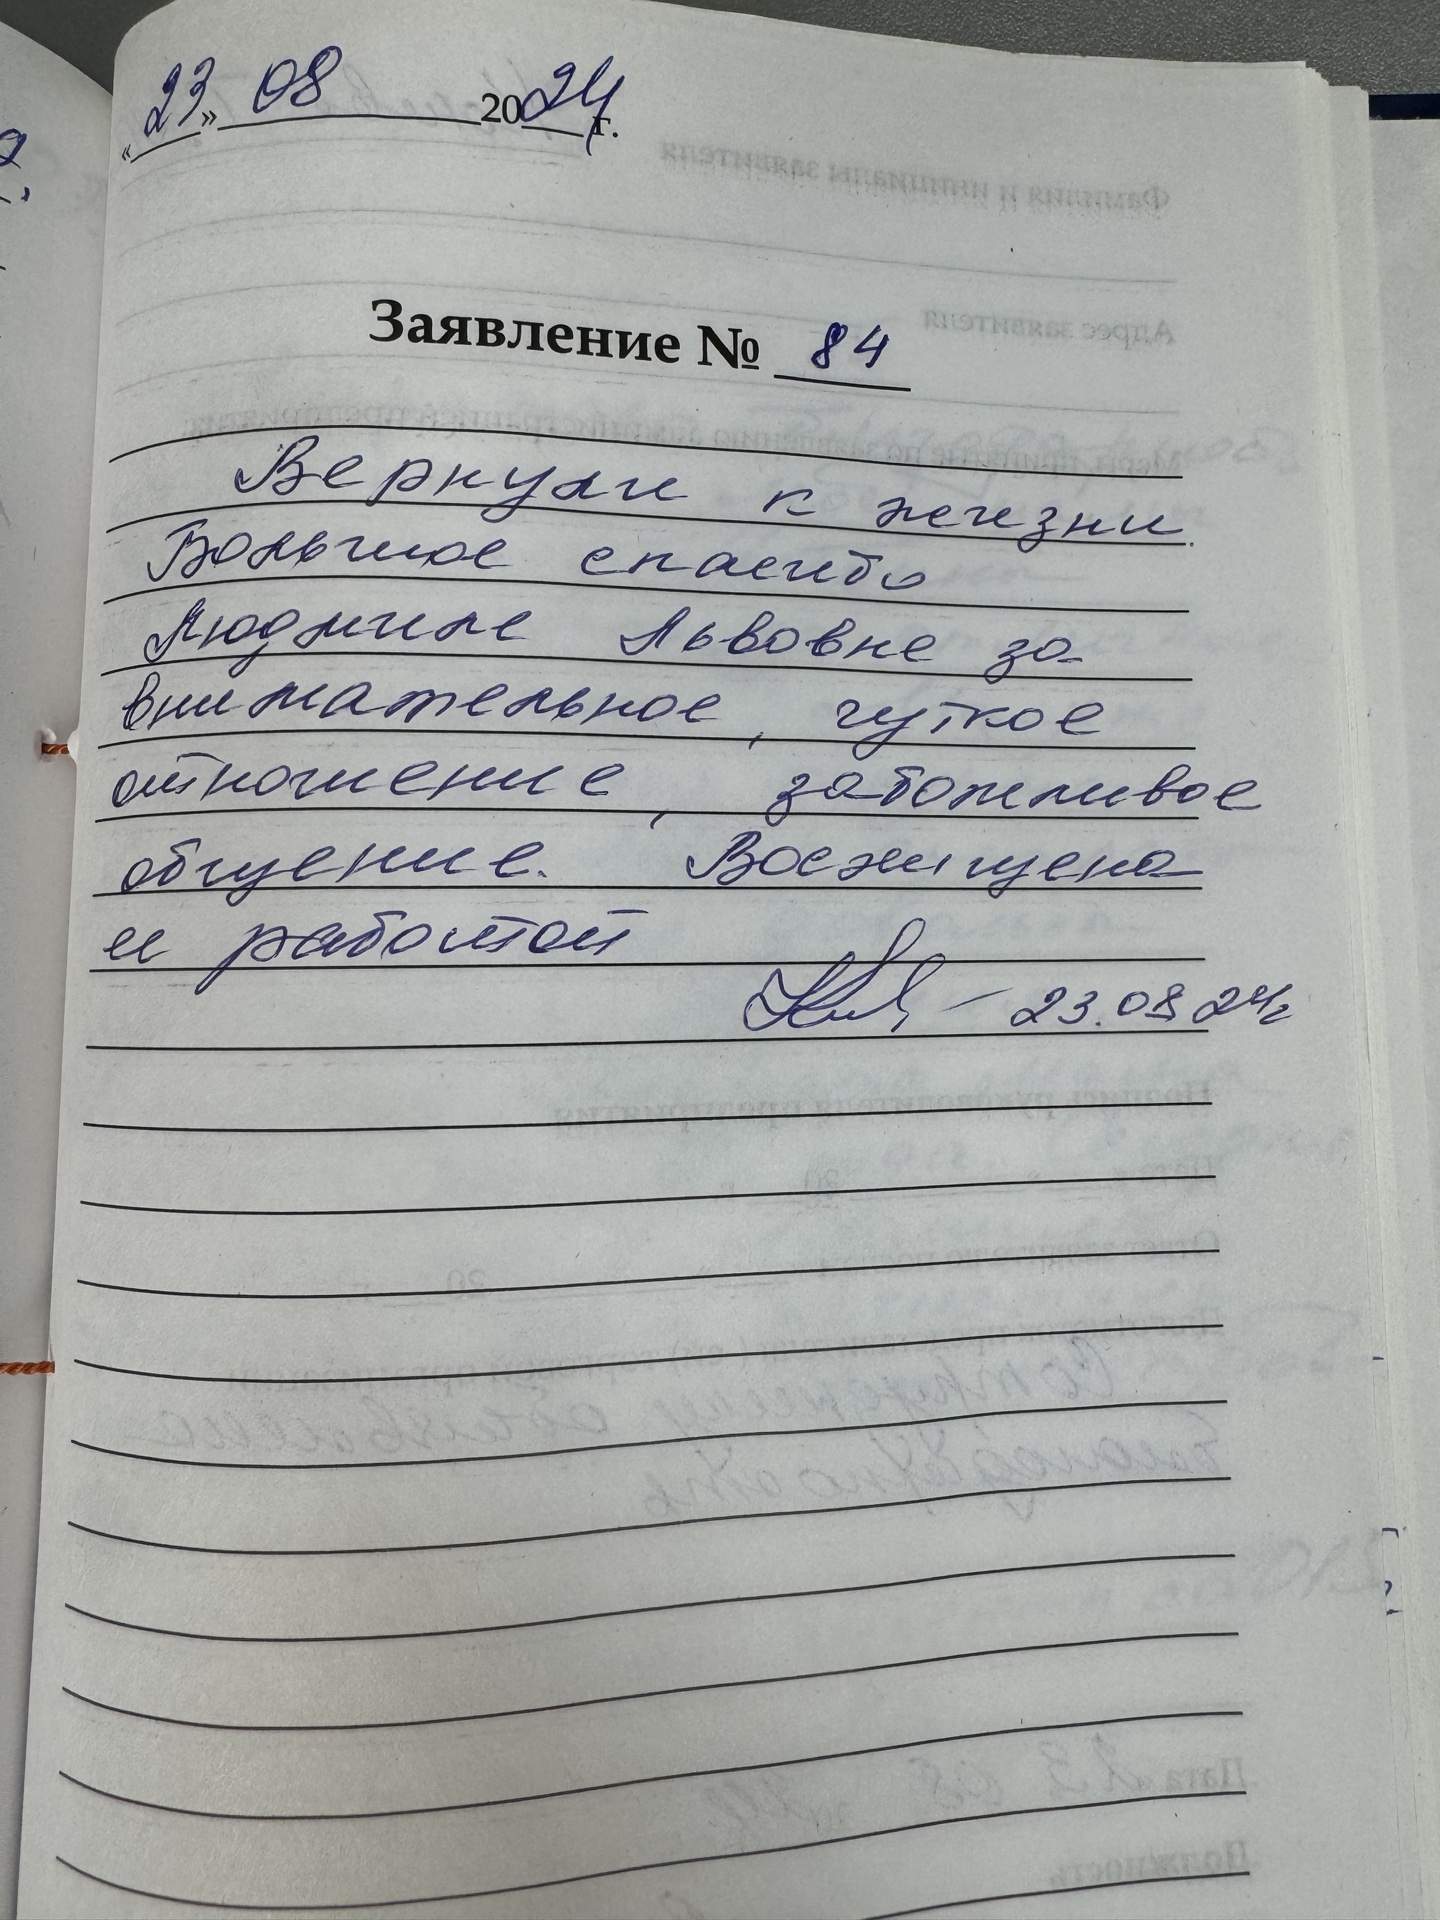 «23» 08 2024 г.
Заявление № 84
Вернули к жизни.
Большое спасибо
Людмиле Львовне за
внимательное, чуткое
отношение, заботливое
общение. Восхищена
и работой
– 23.08 24г